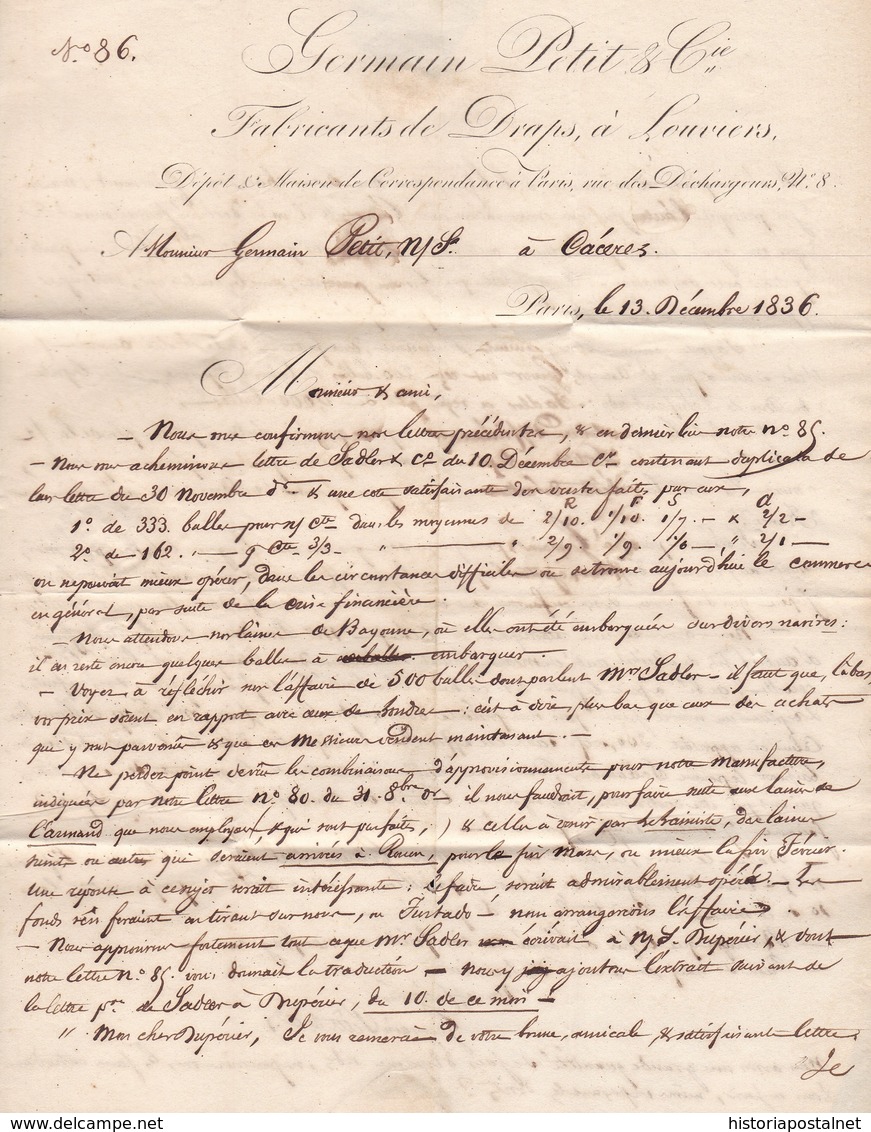 N.o 86.
Germain Petit & Cie
Fabricants de Draps, à Louviers,
Dépôt & Maison de Correspondance à Paris, rue des Déchargeurs, No. 8.
A Monsieur Germain Petit, N/S. à Cáceres.
Paris, le 13. Décembre 1836.
Monsieur & ami,
— Nous vous confirmons nos lettres précédentes, & en dernier lieu notre no. 85.
— Nous vous acheminons lettre de Sadler & Co. du 10. Décembre Ct. contenant duplicata de
leur lettre du 30 Novembre dr. & une cote satisfaisante des ventes faites par eux,
R F S A
1o. de 333. balles pour n/ Cte. dans les moyennes de 2/10. 1/10. 1/7. — & 2/2 —
2o. de 162. — " — Cte. 3/3 — " — " 2/9. 1/9. 1/6 — " 2/1 —
on ne pouvait mieux opérer, dans les circonstances difficiles où se trouve aujourd'hui le commerce
en général, par suite de la crise financière.
— Nous attendons nos laines de Bayonne, où elles ont été embarquées sur divers navires:
il en reste encore quelques balles à embarquer.
— Voyez à réfléchir sur l'affaire de 500 balles dont parlent Mrs. Sadler — il faut que, là bas,
vos prix soient en rapport avec ceux de Londres: c'est à dire, plus bas que ceux des achats
qui y sont parvenus & que ces Messieurs vendent maintenant. —
— Ne perdez point de vue les combinaisons d'approvisionnements pour notre manufacture,
indiquées par notre lettre no. 80. du 31. 8bre or il nous faudrait, pour faire suite aux laines de
l'armand que nous employons, (& qui sont parfaites,) & celles à venir par, des laines
ou autres que seraient arrivées à Rouen, pour la fin Mars, ou mieux la fin Février.
Une réponse à ce sujet serait intéressante: l'affaire serait admirablement opérée. — Les
fonds s'en feraient en tirant sur nous, ou Furtado — nous arrangerions l'affaire
— Nous appuyons fortement tout ce que Mr. Sadler écrivait à N/S. Dupérier, & dont
notre lettre No. 85. vous donnait la traduction — nous y ajoutons l'extrait suivant de
la lettre pre. de Sadler à Dupérier, du 10. de ce mois —
" Mon cher Dupérier, Je vous remercie de votre bonne, amicale, & satisfaisante lettre
Je
historiapostalnet
historiapostal.net